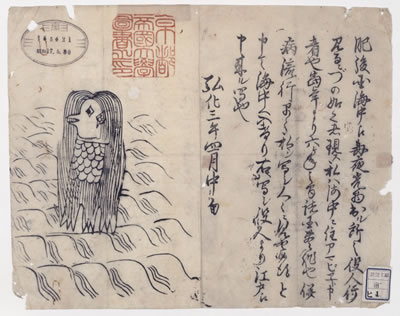 肥後国海中え毎夜光物出ル所之役人行
見るニづの如く者現ス私ハ海中ニ住アマビヱト申
者也当年より六ヶ年之間諸国豊作也併
病流行早々私シ写シ人々ニ見せ候得と
申て海中へ入けり右ハ写シ役人より江戸え
申来ル写也
弘化三年四月中旬
京都帝國大學圖書之印